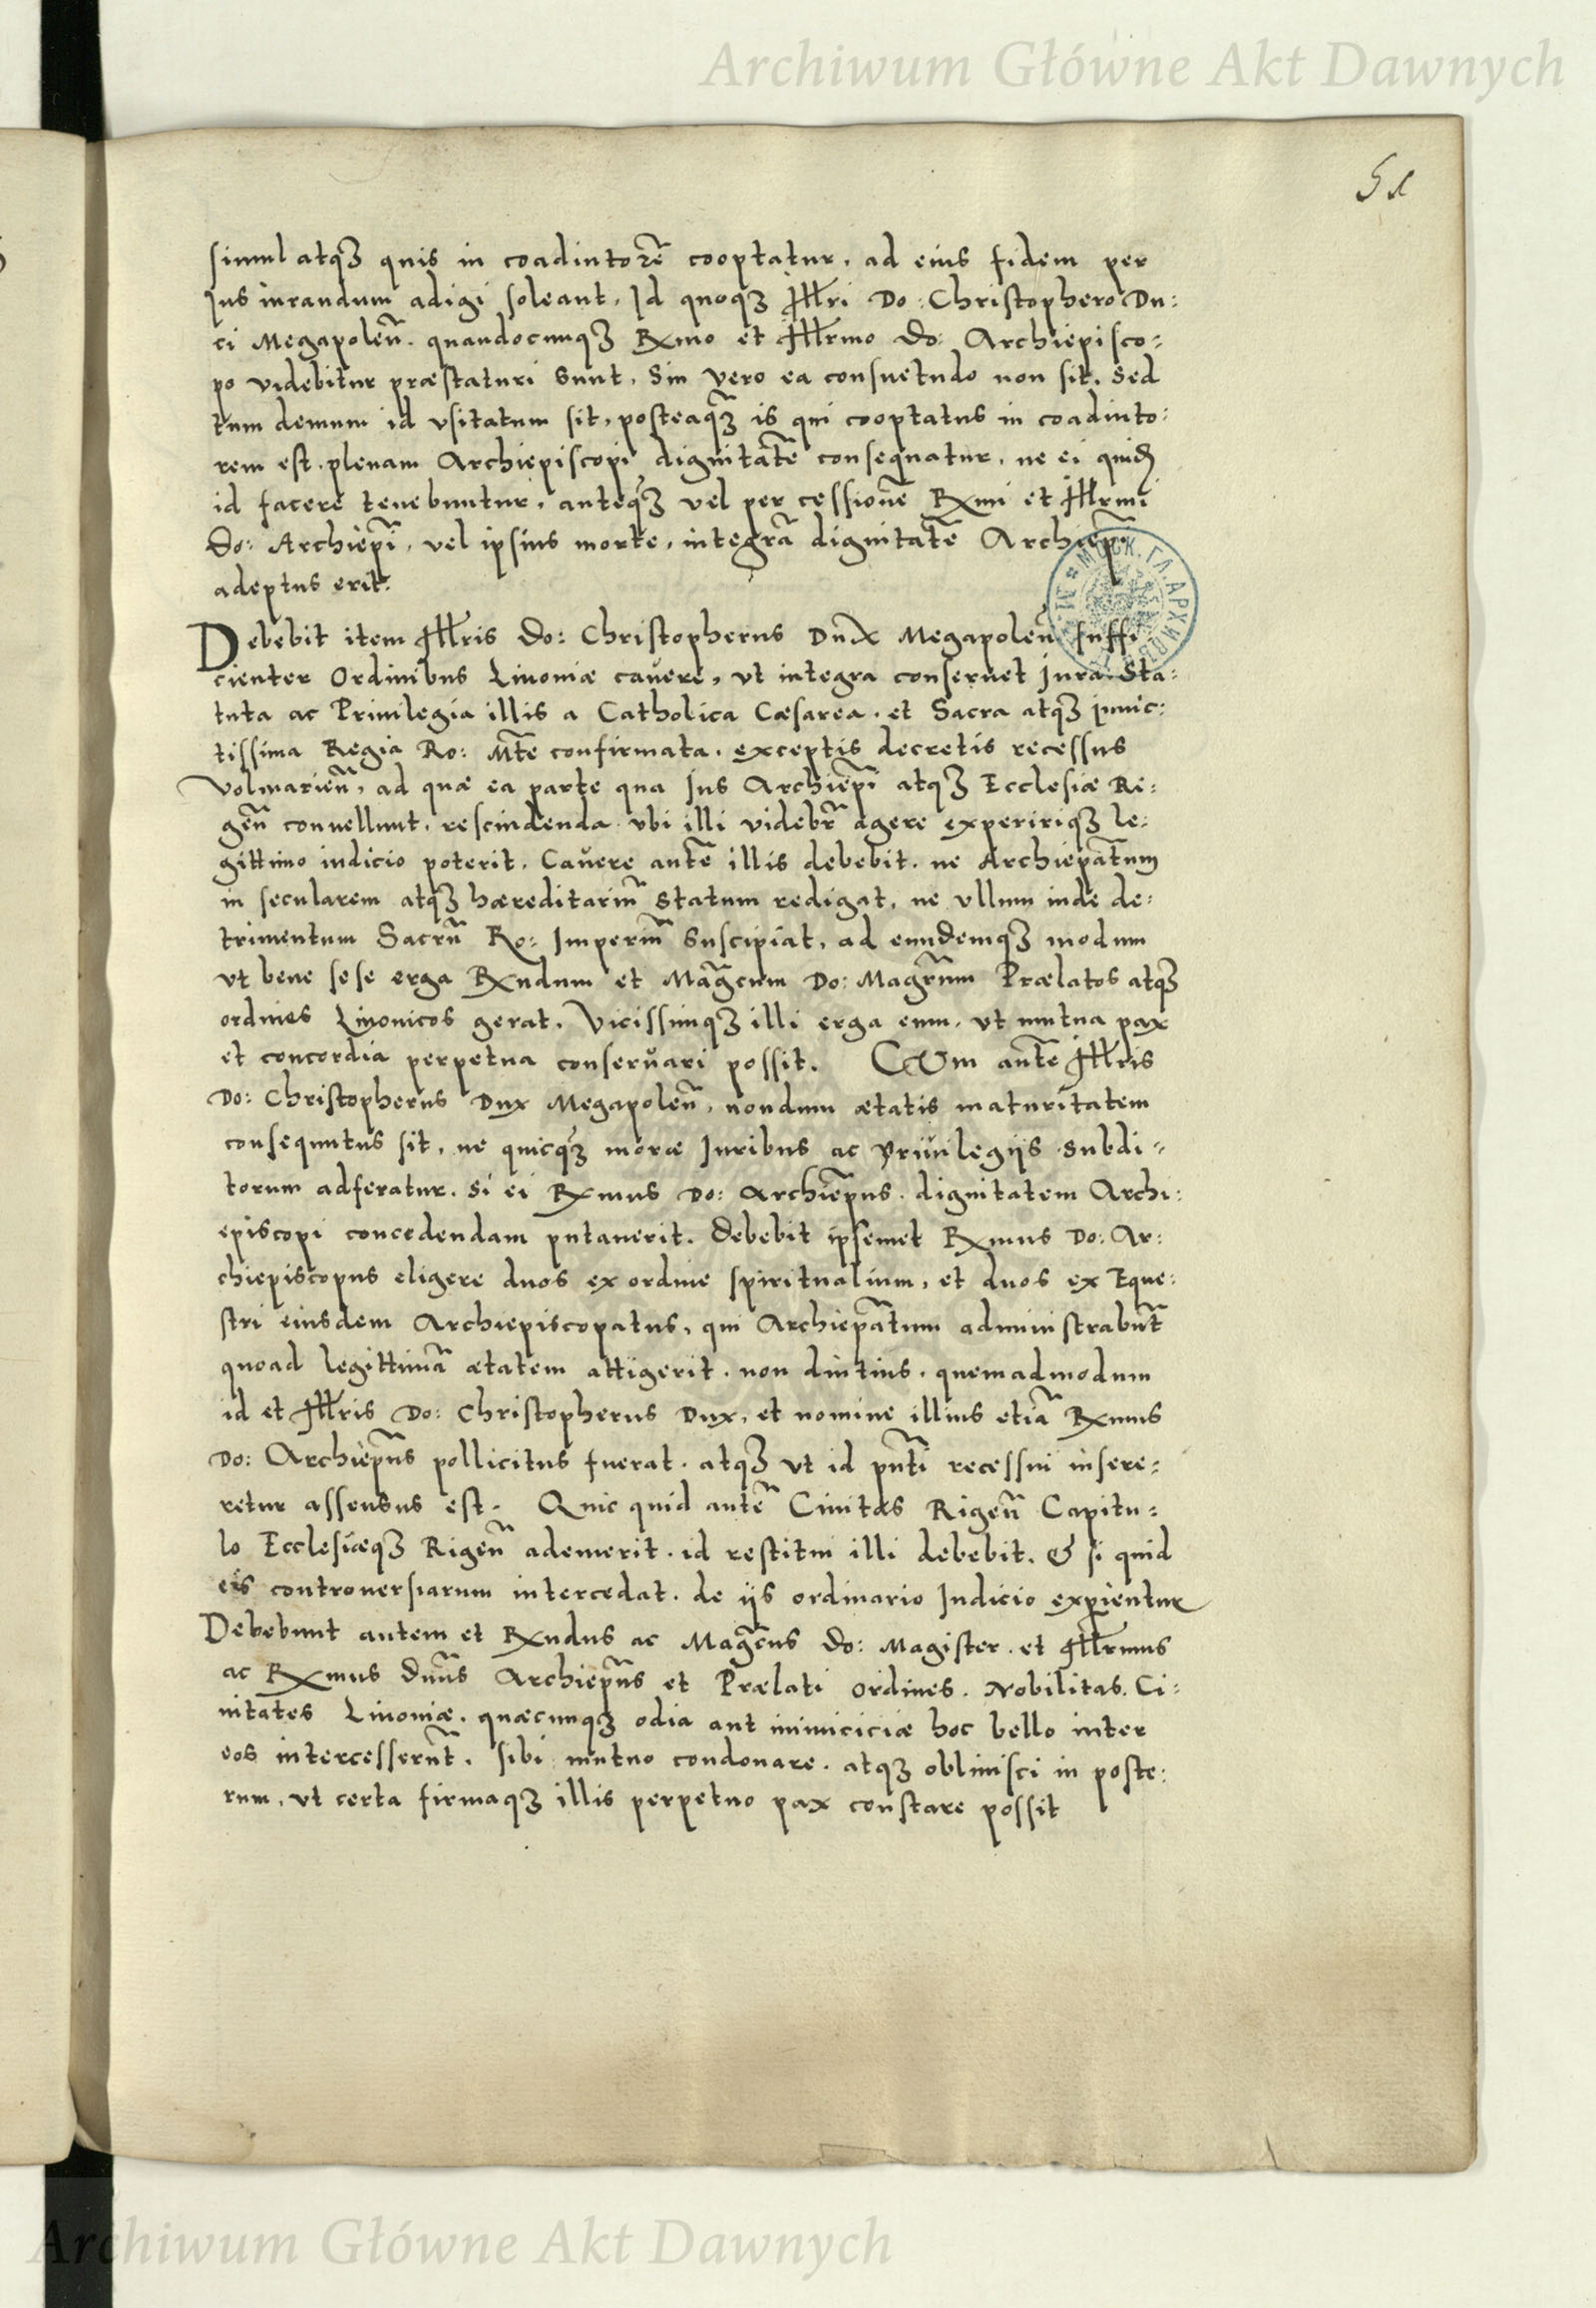 Archiwum Główne Akt Dawnych
51
simul atqȝ quis in coadiutorē cooptatur, ad eius fidem per
Jus iurandum adigi soleant, Id quoqȝ Illri Do: Christophero Du:
ci Megapoleñ. quandocunqȝ Rxmo et Illrmo Do: Archiepisco:
po videbitur præstaturi sunt, Sin vero ea consuetudo non sit. Sed
tum demum id vsitatum sit, posteaqȝ̃ is qui cooptatus in coadiuto:
rem est. plenam Archiepiscopi dignitatẽ consequatur, ne ei quid
id facere tenebuntur, anteqȝ̃ vel per cessionẽ Rxmi et Illrmi
Do: Archiepĩ, vel ipsius morte, integrã dignitatẽ Archiepĩ
adeptus erit.
Debebit item Illris Do: Christopherus Dux Megapoleñ suffi
cienter Ordinibus Liuoniæ cauere, vt integra conseruet Jura. Sta:
tuta ac Priuilegia illis a Catholica Cæsarea. et Sacra atqȝ inuic:
tissima Regia Ro: Mtẽ confirmata. exceptis decretis recessus
Volmarieñ, ad quæ ea parte qua Jus Archiepĩ atqȝ Ecclesiæ Ri:
geñ conuellunt, rescindenda vbi illi videbr̃ agere expeririqȝ le:
gittimo iudicio poterit. Cauere autẽ illis debebit. ne Archiepãtum
in secularem atqȝ hæreditariũ statum redigat, ne vllum inde de:
trimentum Sacrũ Ro: Imperiũ suscipiat, ad eundemqȝ modum
vt bene sese erga Rxndum et Magc̃um Do: Magrũm Prælatos atqȝ
ordines Liuonicos gerat, Vicissimqȝ illi erga eum, vt mutua pax
et concordia perpetua conseruari possit. CVm autẽ Illris
Do: Christopherus Dux Megapoleñ, nondum ætatis maturitatem
consequutus sit, ne quicqȝ̃ moræ Juribus ac priuilegijs subdi:
torum adferatur. Si ei Rxmus Do: Archiepũs. dignitatem Archi:
episcopi concedendam putauerit. Debebit ipsemet Rxmus Do: Ar:
chiepiscopus eligere duos ex ordine spiritualium, et duos ex Eque:
stri eiusdem Archiepiscopatus, qui Archiepãtum administrabũt
quoad legittimã ætatem attigerit. non diutius. quemadmodum
id et Illris Do: Christopherus Dux, et nomine illius etiã Rxmus
Do: Archiepũs pollicitus fuerat. atqȝ vt id pñti recessui insere:
retur assensus est. Quic quid autẽ Ciuitas Rigeñ Capitu:
lo Ecclesiæqȝ Rigeñ ademerit. id restitui illi debebit. & si quid
eis controuersiarum intercedat. de ijs ordinario Judicio experientur
Debebunt autem et Rxndus ac Magc̃us Do: Magister. et Illrmus
ac Rxmus Dñus Archiepũs et Prælati ordines. Nobilitas. Ci:
uitates Liuoniæ. quæcunqȝ odia aut inimiciciæ hoc bello inter
eos intercesserũt. sibi mutuo condonare. atqȝ obliuisci in poste:
rum, vt certa firmaqȝ illis perpetuo pax constare possit
Archiwum Główne Akt Dawnych